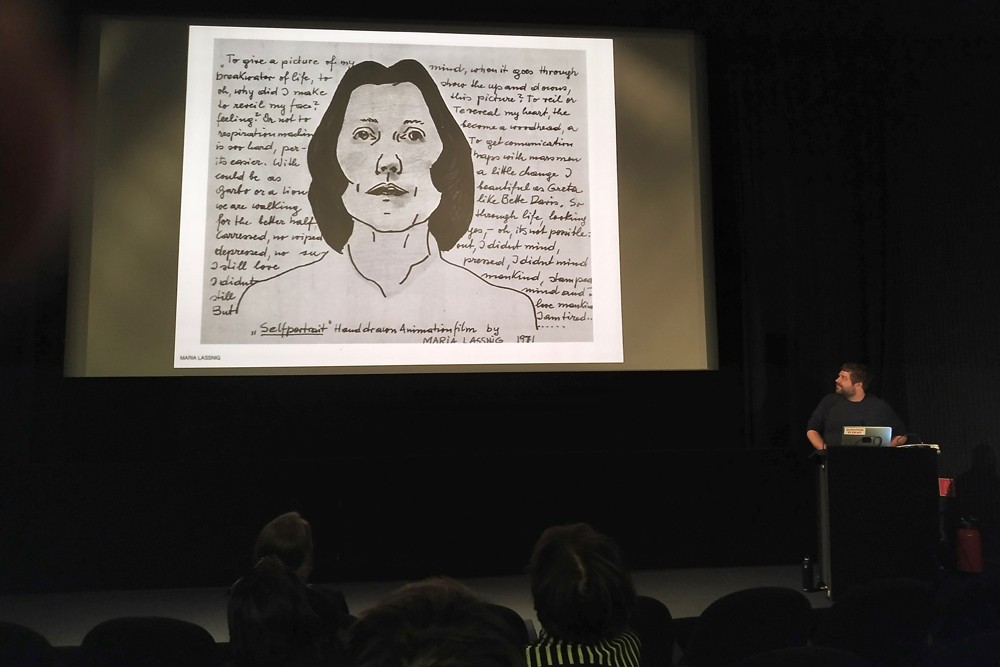 „To give a picture of my mind, when it goes through
breakwater of life, to show the up and downs,
oh, why did I make this picture? To veil or
to reveil my face? To reveal my heart, the
feeling? Or not to become a woodhead, a
respiration machin To get comunication
is soo hard, per- haps with marsmen
its easier. With a little change I
could be as beautiful as Greta
Garbo or a Lion like Bette Davis. So
we are walking through life, looking
for the better half yes, - oh, its not possible:
Carressed, no wiped out, I didnt mind,
depressed, no su pressed, I didnt mind
I still love mankind, stamped
I didnt mind and
still love mankin
But I am tired..
„Selfportrait" Handdrawn Animationfilm by
MARIA LASSNIG 1971
MARIA LASSNIG